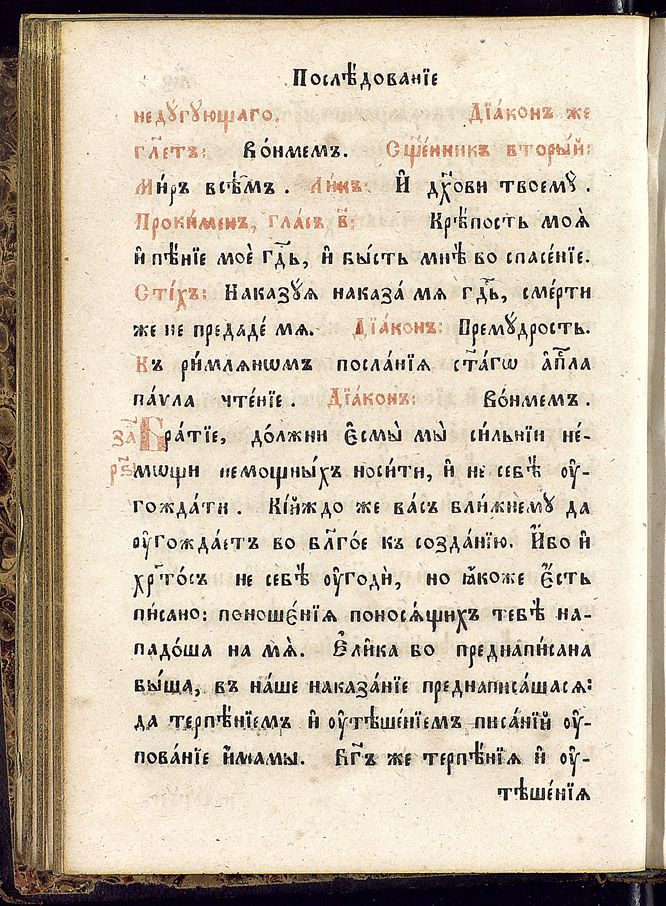 Послѣ́дованїе
недꙋ́гꙋющаго. Дїа́конъ же
гл҃етъ: Во́нмемъ. Сщ҃е́нникъ вторы́й:
Ми́ръ всѣ̑мъ. Ли́къ: И҆ дх҃ови твоемꙋ̀.
Проки́менъ, гла́съ в҃: Крѣ́пость моѧ̀
и҆ пѣ́нїе моѐ гд҇ь, и҆ бы́сть мнѣ̀ во спасе́нїе.
Сті́хъ: Наказꙋ́ѧ наказа́ мѧ гд҇ь, сме́рти
же не предаде́ мѧ. Дїа́конъ: Премꙋ́дрость.
Къ ри́млѧнѡмъ посла́нїѧ ст҃а́гѡ а҆пⷭ҇ла
па́ѵла чте́нїе. Дїа́конъ: Во́нмемъ.
за҃ Бра́тїе, до́лжни є҆смы̀ мы̀ си́льнїи не́-
мѡщи немощны́хъ носи́ти, и҆ не себѣ̀ оу҆-
гожда́ти. Кі́йждо же ва́съ бли́жнемꙋ да
оу҆гожда́етъ во бл҃го́е къ созда́нїю. И҆́бо и҆
хрⷭ҇то́съ не себѣ̀ оу҆годѝ, но ꙗ҆́коже є҆́сть
пи́сано: поноше́нїѧ поносѧ́щихъ тебѣ̀ на-
падо́ша на мѧ̀. Є҆ли̑ка бо преднапи̑сана
бы́ша, въ на́ше наказа́нїе преднаписа́шасѧ:
да терпѣ́нїемъ и҆ оу҆тѣше́нїемъ писа́нїй оу҆-
пова́нїе и҆́мамы. Бг҃ъ же терпѣ́нїѧ и҆ оу҆-
тѣше́нїѧ